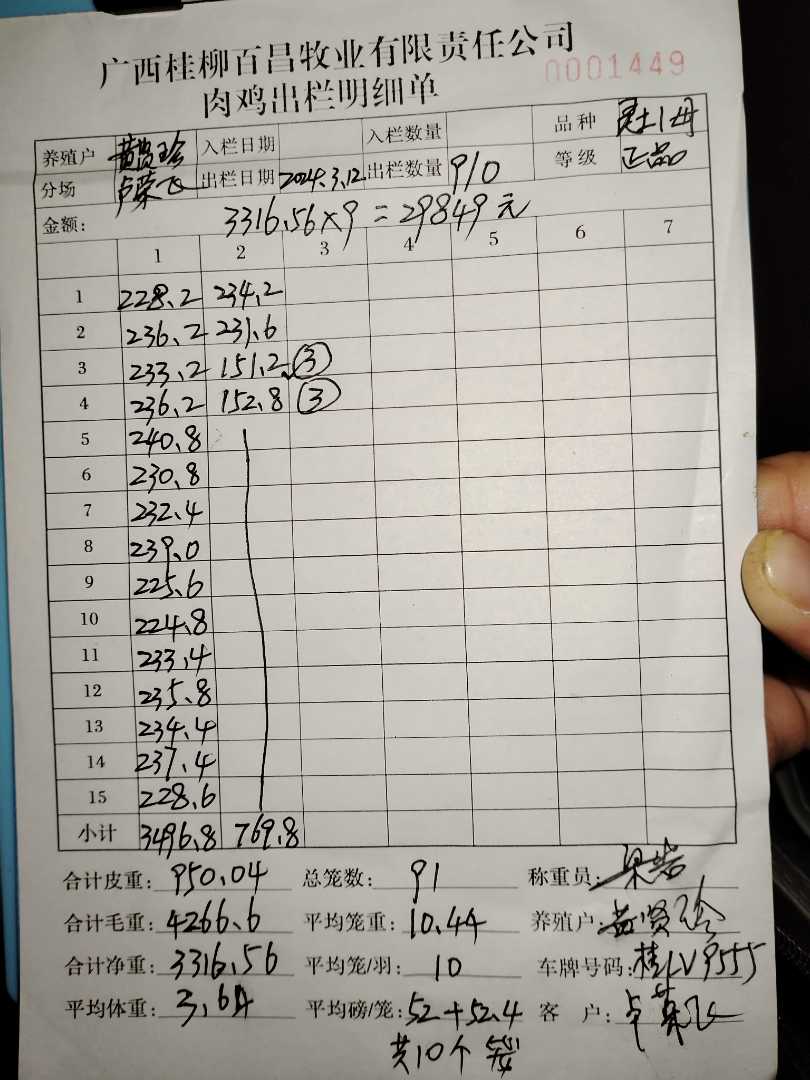 广西桂柳百昌牧业有限责任公司
0001449
肉鸡出栏明细单
养殖户 黄贤珍 入栏日期 入栏数量 品种 土1母
分场 卢荣飞 出栏日期 2024.3.12 出栏数量 910 等级 正品
金额: 3316.56×9=29849元
1 2 3 4 5 6 7
1 228.2 234.2
2 236.2 231.6
3 233.2 151.2 ③
4 236.2 152.8 ③
5 240.8
6 230.8
7 232.4
8 239.0
9 225.6
10 224.8
11 233.4
12 235.8
13 234.4
14 237.4
15 228.6
小计 3496.8 769.8
合计皮重: 950.04 总笼数: 91 称重员:
合计毛重: 4266.6 平均笼重: 10.44 养殖户: 黄贤珍
合计净重: 3316.56 平均笼/羽: 10 车牌号码: 桂LV9555
平均体重: 3.64 平均磅/笼: 52+52.4 客 户: 卢荣飞
共10个